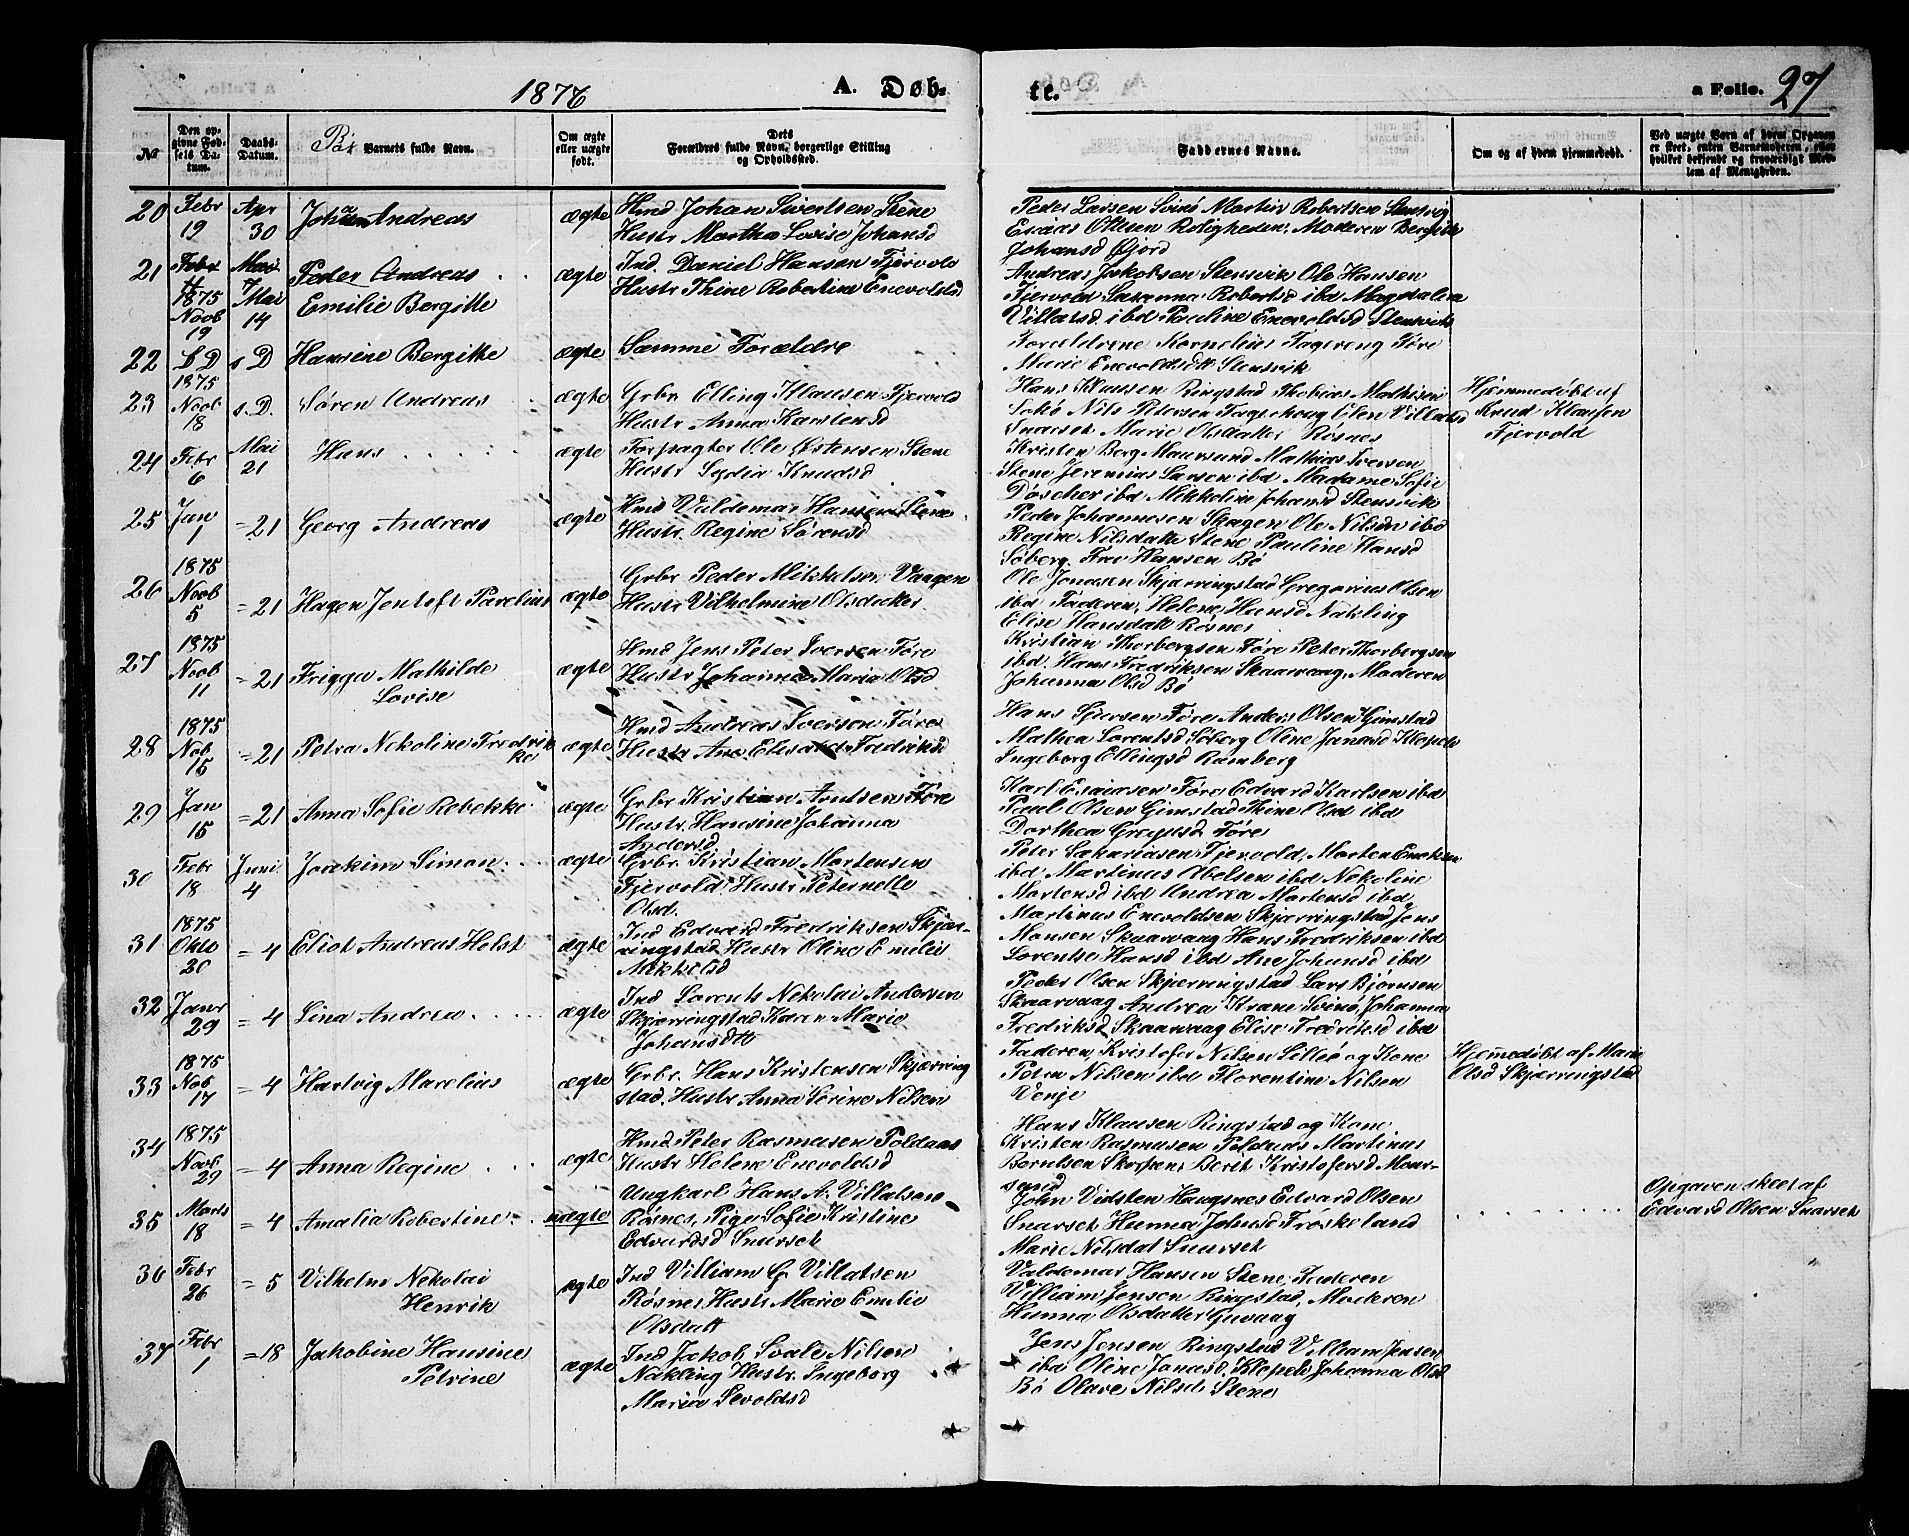 1876 A. Døb-
te. a Folio. 27
№ Den opgivne Fødsels Datum. Daabs-Datum. Bø Barnets fulde Navn. Om ægte eller uægte født. Dets Forældres fulde Navn, borgerlige Stilling og Opholdssted. Faddernes Navne. Om og af hvem hjemmedøbt. Ved uægte Børn af hvem Opgaven er skeet, enten Barnemoderen, eller hvilket bekjendt og troværdigt Medlem af Menigheden.
20 Febr 19 Apr 30 Johan Andreas ægte Hmd Johan Sivertsen Stene
Hustr Martha Lovise Johansd
Peder Larsen Svinø Martin Robertsen Stensvig
Esaias Olsen Roligheden, Moderen Bergitte
Johansd Øjord
21 1875 Novb 19 Mai 14 Peder Andreas
Emilie Bergitte
ægte Ind. Daniel Hansen Fjervold
Hustr Thine Robertine Enevoldsd
Andreas Jakobsen Stensvik Ole Hansen
Fjervold Susanna Robertsd ibd Magdalena
Villatsd. ibd Pauline Enevoldsd Stensvik
22 s D s D Hansine Bergitte ægte Samme Forældre
Forældrene Kornelius Fagereng Føre
Marie Enevoldsdtt Stensvik
23 1875 Novb 18 s. D. Søren Andreas ægte Grbr Elling Klausen Fjervold
Hustr Anna Karstensd
Hans Klausen Ringstad Thobias Mathisen
Sokø Nils Petersen Fagerhaug Elen Villatsd
Snarset Marie Olsdatter Røsnes
Hjemmedøbt af
Knud Klausen
Fjervold
24 Febr 6 Mai 21 Hans ægte Forpagter Ole Østensen Stene
Hustr Lydia Knudsd
Kristen Berg Maursund Mathias Iversen
Stene Jeremias Larsen ibd Madame Sofie
Døscher ibd Mikkoline Johansd Stensvik
25 Jan 1 = 21 Georg Andreas ægte Hmd Valdemar Hansen Stene
Hustr. Regine Sørensd
Peder Johannesen Skagen Ole Nilsen ibd
Regine Nilsdatte Stene Pauline Hansd
Søberg. Fru Hansen Bø
26 1875 Novb 5 = 21 Hagen Jentoft Parelius ægte Grbr Peder Mikkelsen Vaagen
Hustr Vilhelmine Olsdatter
Ole Jonasen Skjærringstad Gregorius Olsen
ibd Faderen, Helene Hansd Nakling
Elise Hansdatt Røsnes
27 1875 Novb 11 = 21 Frigga Mathilde
Lovise
ægte Hmd Jens Peter Iversen Føre
Hustr Johanna Maria Olsd
Kristian Thorbergsen Føre Peter Thorbergsen
ibd. Hans Fredriksen Skaarvaag, Moderen
Johanna Olsd Bø
28 1875 Nob 15 = 21 Petra Nekoline Fredrik
ke
ægte Hmd Andreas Iversen Føre
Hustr Ane Elisabet Fredriksd
Hans Sjursen Føre Anders Olsen Gimstad
Mathea Lorentsd Søberg Oline Jonasd Klepele
Ingeborg Ellingsd Ramberg
29 Jan 15 = 21 Anna Sofie Rebekke ægte Grbr Kristian Arntsen Føre
Hustr. Hansine Johanna
Andersd
Karl Esaiasen Føre Edvard Karlsen ibd
Paul Olsen Gimstad Thine Olsd ibd
Dorthea Gregusd Føre
30 Febr 18 Juni 4 Joakim Simon ægte Grbr. Kristian Mortensen
Fjervold Hustr Peternelle
Olsd.
Peter Sakariasen Fjervold, Morten Enoksen
ibd Martinus Abelsen ibd Nekoline
Mortensd ibd Andrea Mortensd ibd
31 1875 Okto 20 = 4 Eliot Andreas Holst ægte Ind Edvard Fredriksen Skjær-
ringstad Hustr Oline Emelie
Mikkelsd
Martinus Enevoldsen Skjærringstad Jens
Monsen Skaarvaag Hans Fredriksen ibd
Lorentse Hansd ibd Ane Johansd ibd
32 Janr 29 = 4 Lina Andrea ægte Ind Lorents Nekolai Andersen
Skjærringstad Karen Marie
Johansdtt
Peder Olsen Skjærringstad Lars Bjørnsen
Skaarvaag Andrea Krane Svinø, Johanna
Fredriksd Skaarvaag Elise Fredriksd ibd
33 1875 Nob 17 = 4 Hartvig Marelius ægte Grbr. Hans Kristensen Skjærring
stad. Hustr Anna Sørine Nilsen
Faderen, Kristofer Nilsen Lilleø og Kone
Petra Nilsen ibd Florentine Nilsen
Venje
Hjemmedøbt af Marie
Olsd Skjærringstad
34 1875 Novb 29 = 4 Anna Regine ægte Hmd Peter Rasmusen Poldaas
Hustr Helene Enevoldsd
Hans Klausen Ringstad og Kone
Kristen Rasmusen Poldaas Martinus
Berntsen Skorpen, Berit Kristofersd Maur-
sund
35 Marts 18 = 4 Amalia Robertine uægte Ungkarl Hans A. Villatsen
Røsnes, Pige Sofie Kristine
Edvardsd Snarset
John Vidsten Haugsnes Edvard Olsen
Snarset Hanna Johnsd Frøskeland
Marie Nilsdat Snarset
Opgaven skeet af
Edvard Olsen Snarset
36 Febr 26 = 5 Vilhelm Nekolai
Henrik
ægte Ind Villiam G Villatsen
Røsnes Hustr Marie Emilie
Olsdatt
Valdemar Hansen Stene, Faderen
Villiam Jensen Ringstad, Moderen
Hanna Olsdatter Guvaag
37 Febr 1 = 18 Jakobine Hansine
Petrine
ægte Ind Jakob Svale Nilsen
Nakling Hustr. Ingeborg
Maria Sevoldsd
Jens Jensen Ringstad Villiam Jensen
ibd Oline Jonasd. Klepele Johanna Olsd
Bø Olave Nilsd Stene